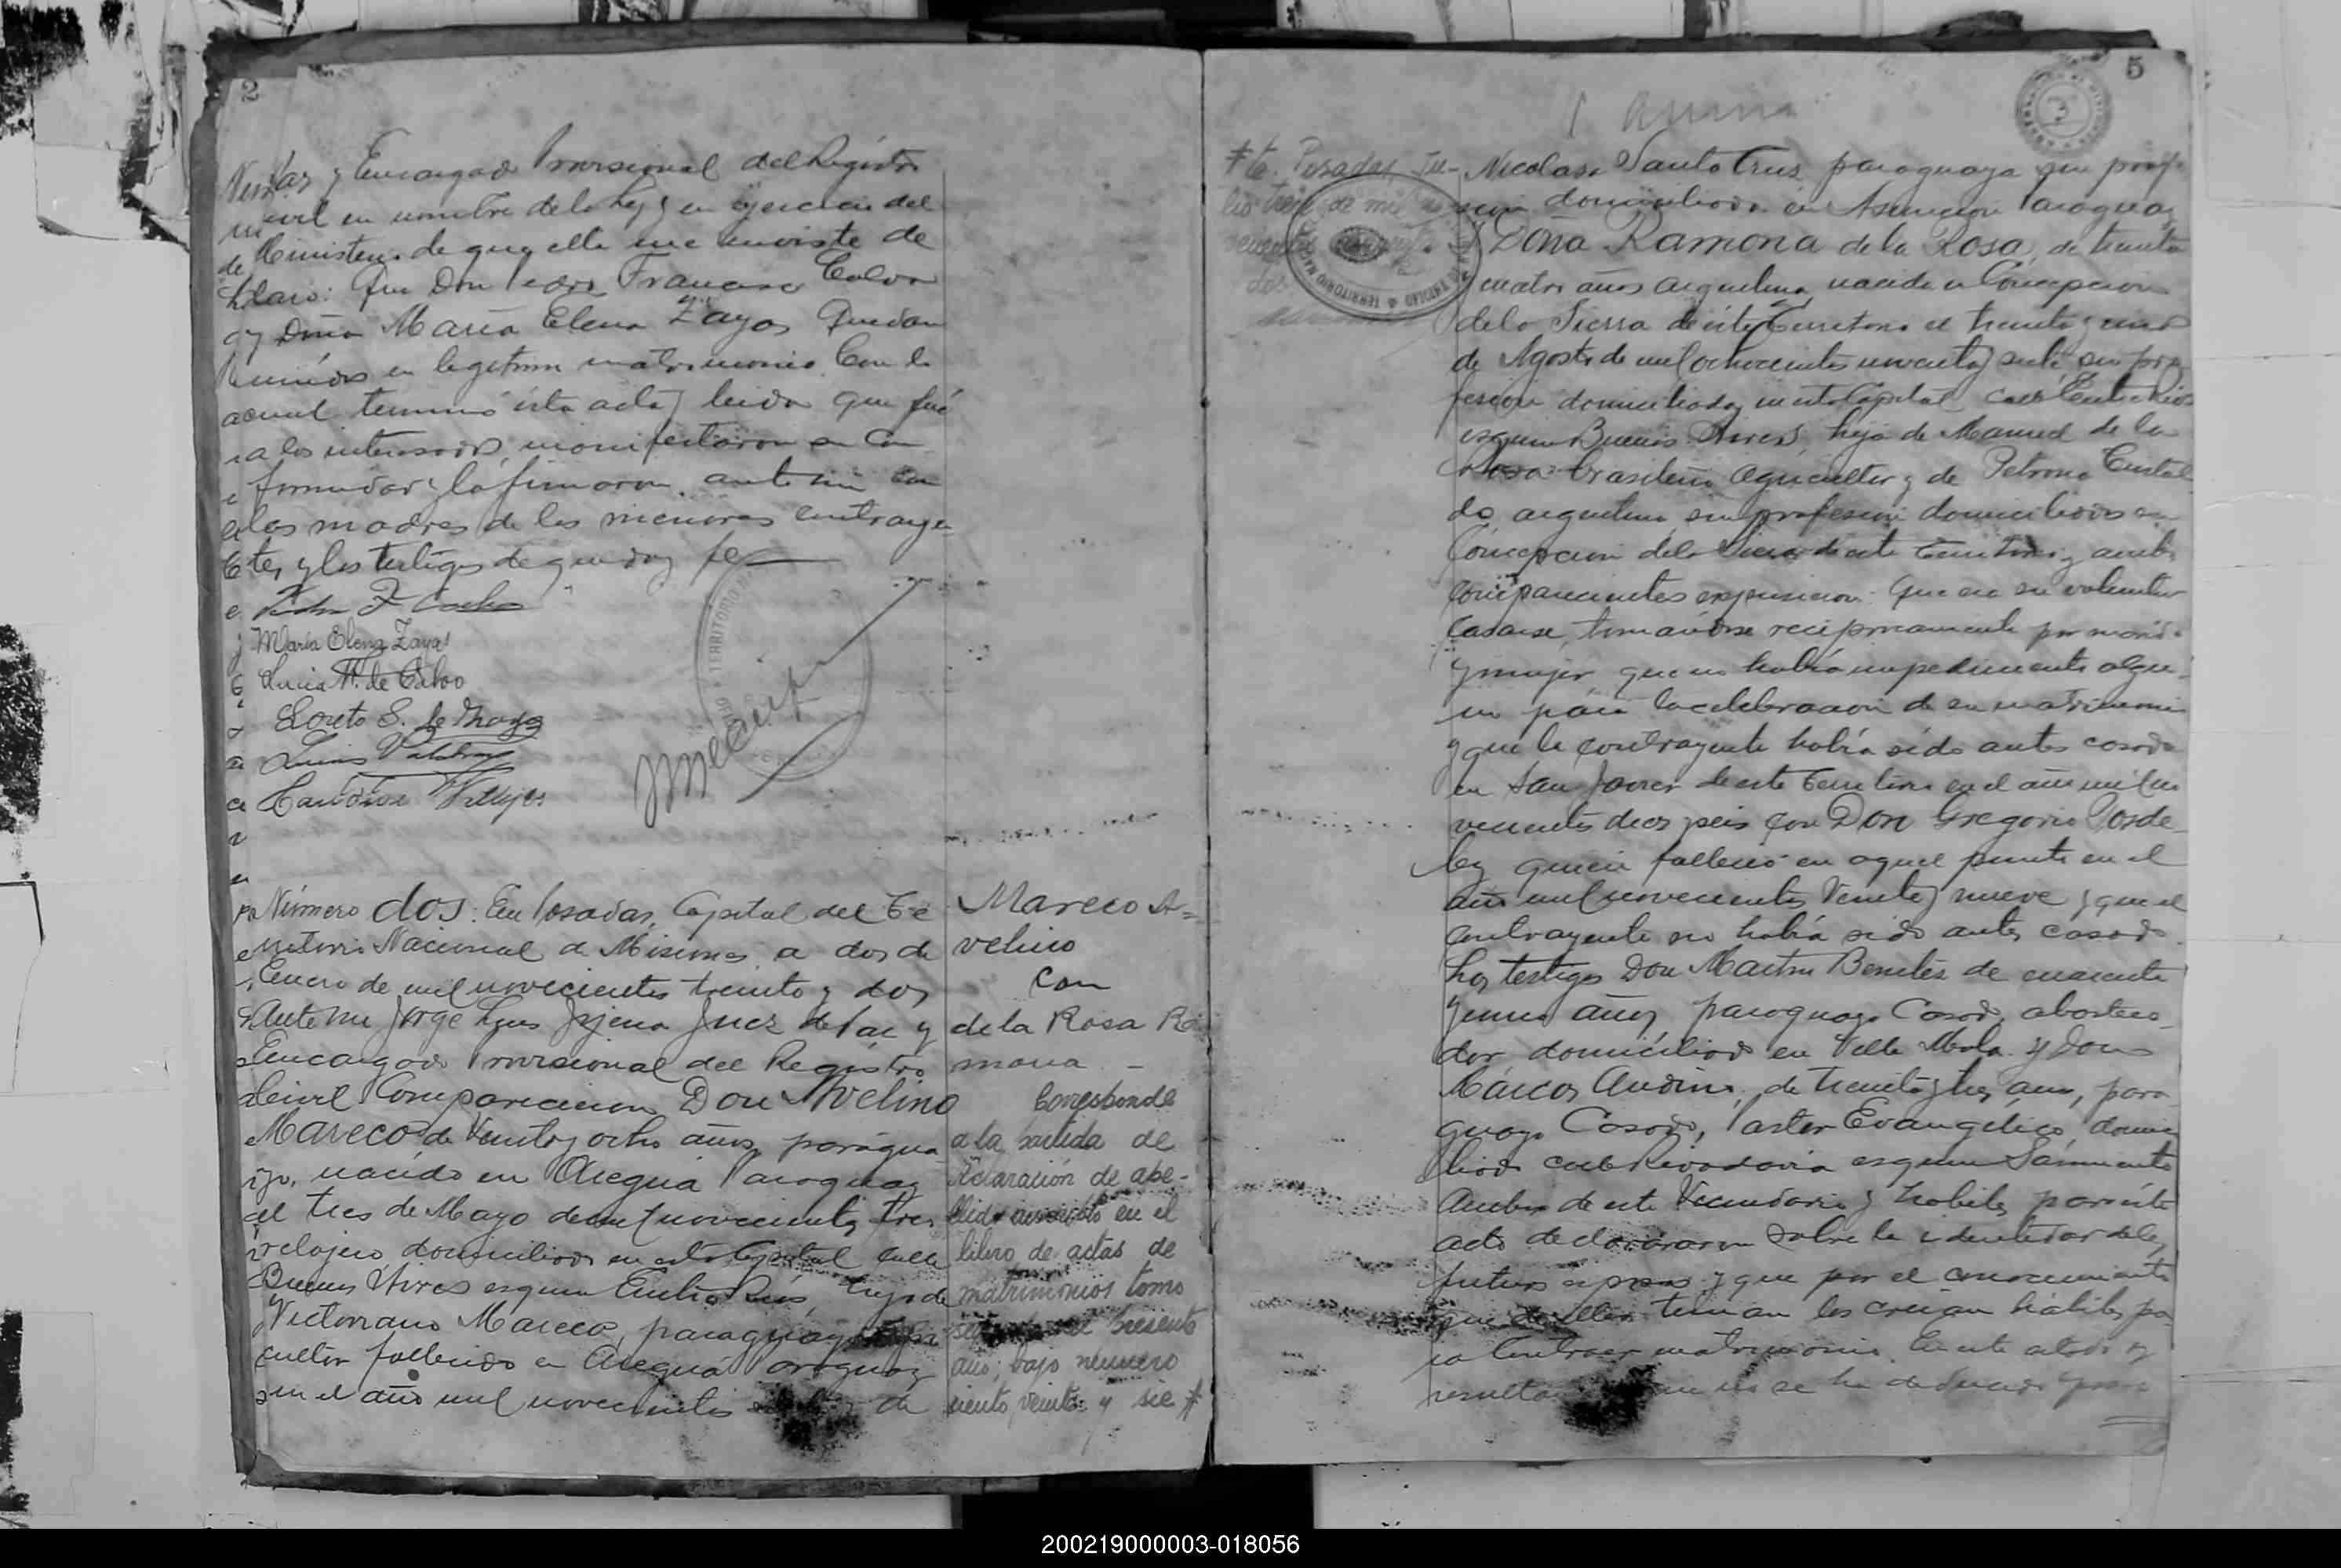 2
Paz y Encargado Provisional del Registro
Civil en nombre de la Ley y en ejercicio del
Ministerio de que ella me inviste de
claro: Que Don Pedro Francisco Calvo
y Doña María Elena Zayas Quedan
unidos en legitimo matrimonio. Con lo
cual terminó ésta acta y leida que fué
a los interesados, manifestaron su con
formidad y la firmaron ante mi con
las madres de los menores contrayen
tes, y los testigos de que doy fe
Pedro F Calvo
Maria Elena Zayas
Lucia M. de Calvo
Loreto S. de
Luis
Villajes
Número dos: En Posadas, Capital del Te
rritorio Nacional de Misiones a dos de
Enero de mil novecientos treinta y dos
Ante mi Jorge Luis Juez de Paz y
Encargado Provisional del Registro
Civil Comparecieron Don Avelino
Mareco de Veinte y ocho años, paragua
yo, nacido en Paraguay
el tres de Mayo de mil novecientos tres
relojero, domiciliado en esta Capital calle
Buenos Aires esquina Entre Rios, hijo de
Victoriano Mareco, paraguayo
cultor fallecido en Paraguay
en el año mil novecientos de
Mareco A=
velino
con
de la Rosa Ra
mona. —
Corresponde
a la partida de
aclaración de ape-
llido inscripto en el
libro de actas de
matrimonios tomo
presente
año; bajo número
ciento veinte y sie #
5
3
# te. Posadas Ju-
lio trece de mil no
vecientos
dos
Nicolasa Santa Cruz paraguaya sin profe
sion domiciliada en Asuncion Paraguay
y Doña Ramona de la Rosa, de treinta
y cuatro años argentina, nacida en Concepcion
de la Sierra de éste Territorio el treinta y uno
de Agosto de mil ochocientos noventa y siete sin pro
fesion domiciliada en esta Capital calle Entre Rios
esquina Buenos Aires, hija de Manuel de la
Rosa brasileño agricultor y de Petrona
do, argentina sin profesion domiciliados en
Concepcion de la Sierra de este Territorio, y ambos
comparecientes expusieron: Que era su voluntad
casarse, tomandose reciprocamente por marido
y mujer que no había impedimento algu
no para la celebracion de su matrimonio
y que la contrayente había sido antes casada
en San Javier de este Territorio en el año mil no
vecientos diez y seis con Don Gregorio
quien falleció en aquel punto en el
año mil novecientos Veinte y nueve y que el
contrayente no había sido antes casado.
Los testigos Don Martin Benitez de cuarenta
y años, paraguayo Casado, abastece
dor domiciliado en Villa y Don
Marcos Andino, de treinta y tres años, para
guayo Casado, Pastor Evangélico, domici
liado calle Rivadavia esquina Sarmiento
Ambos de este Vecindario y habiles para éste
acto declararon sobre la identidad de los
futuros esposos y que por el conocimiento
que de ellos tenian los creian hábiles pa
ra Contraer matrimonio. En este estado y
resultando que no se ha deducido
200219000003-018056